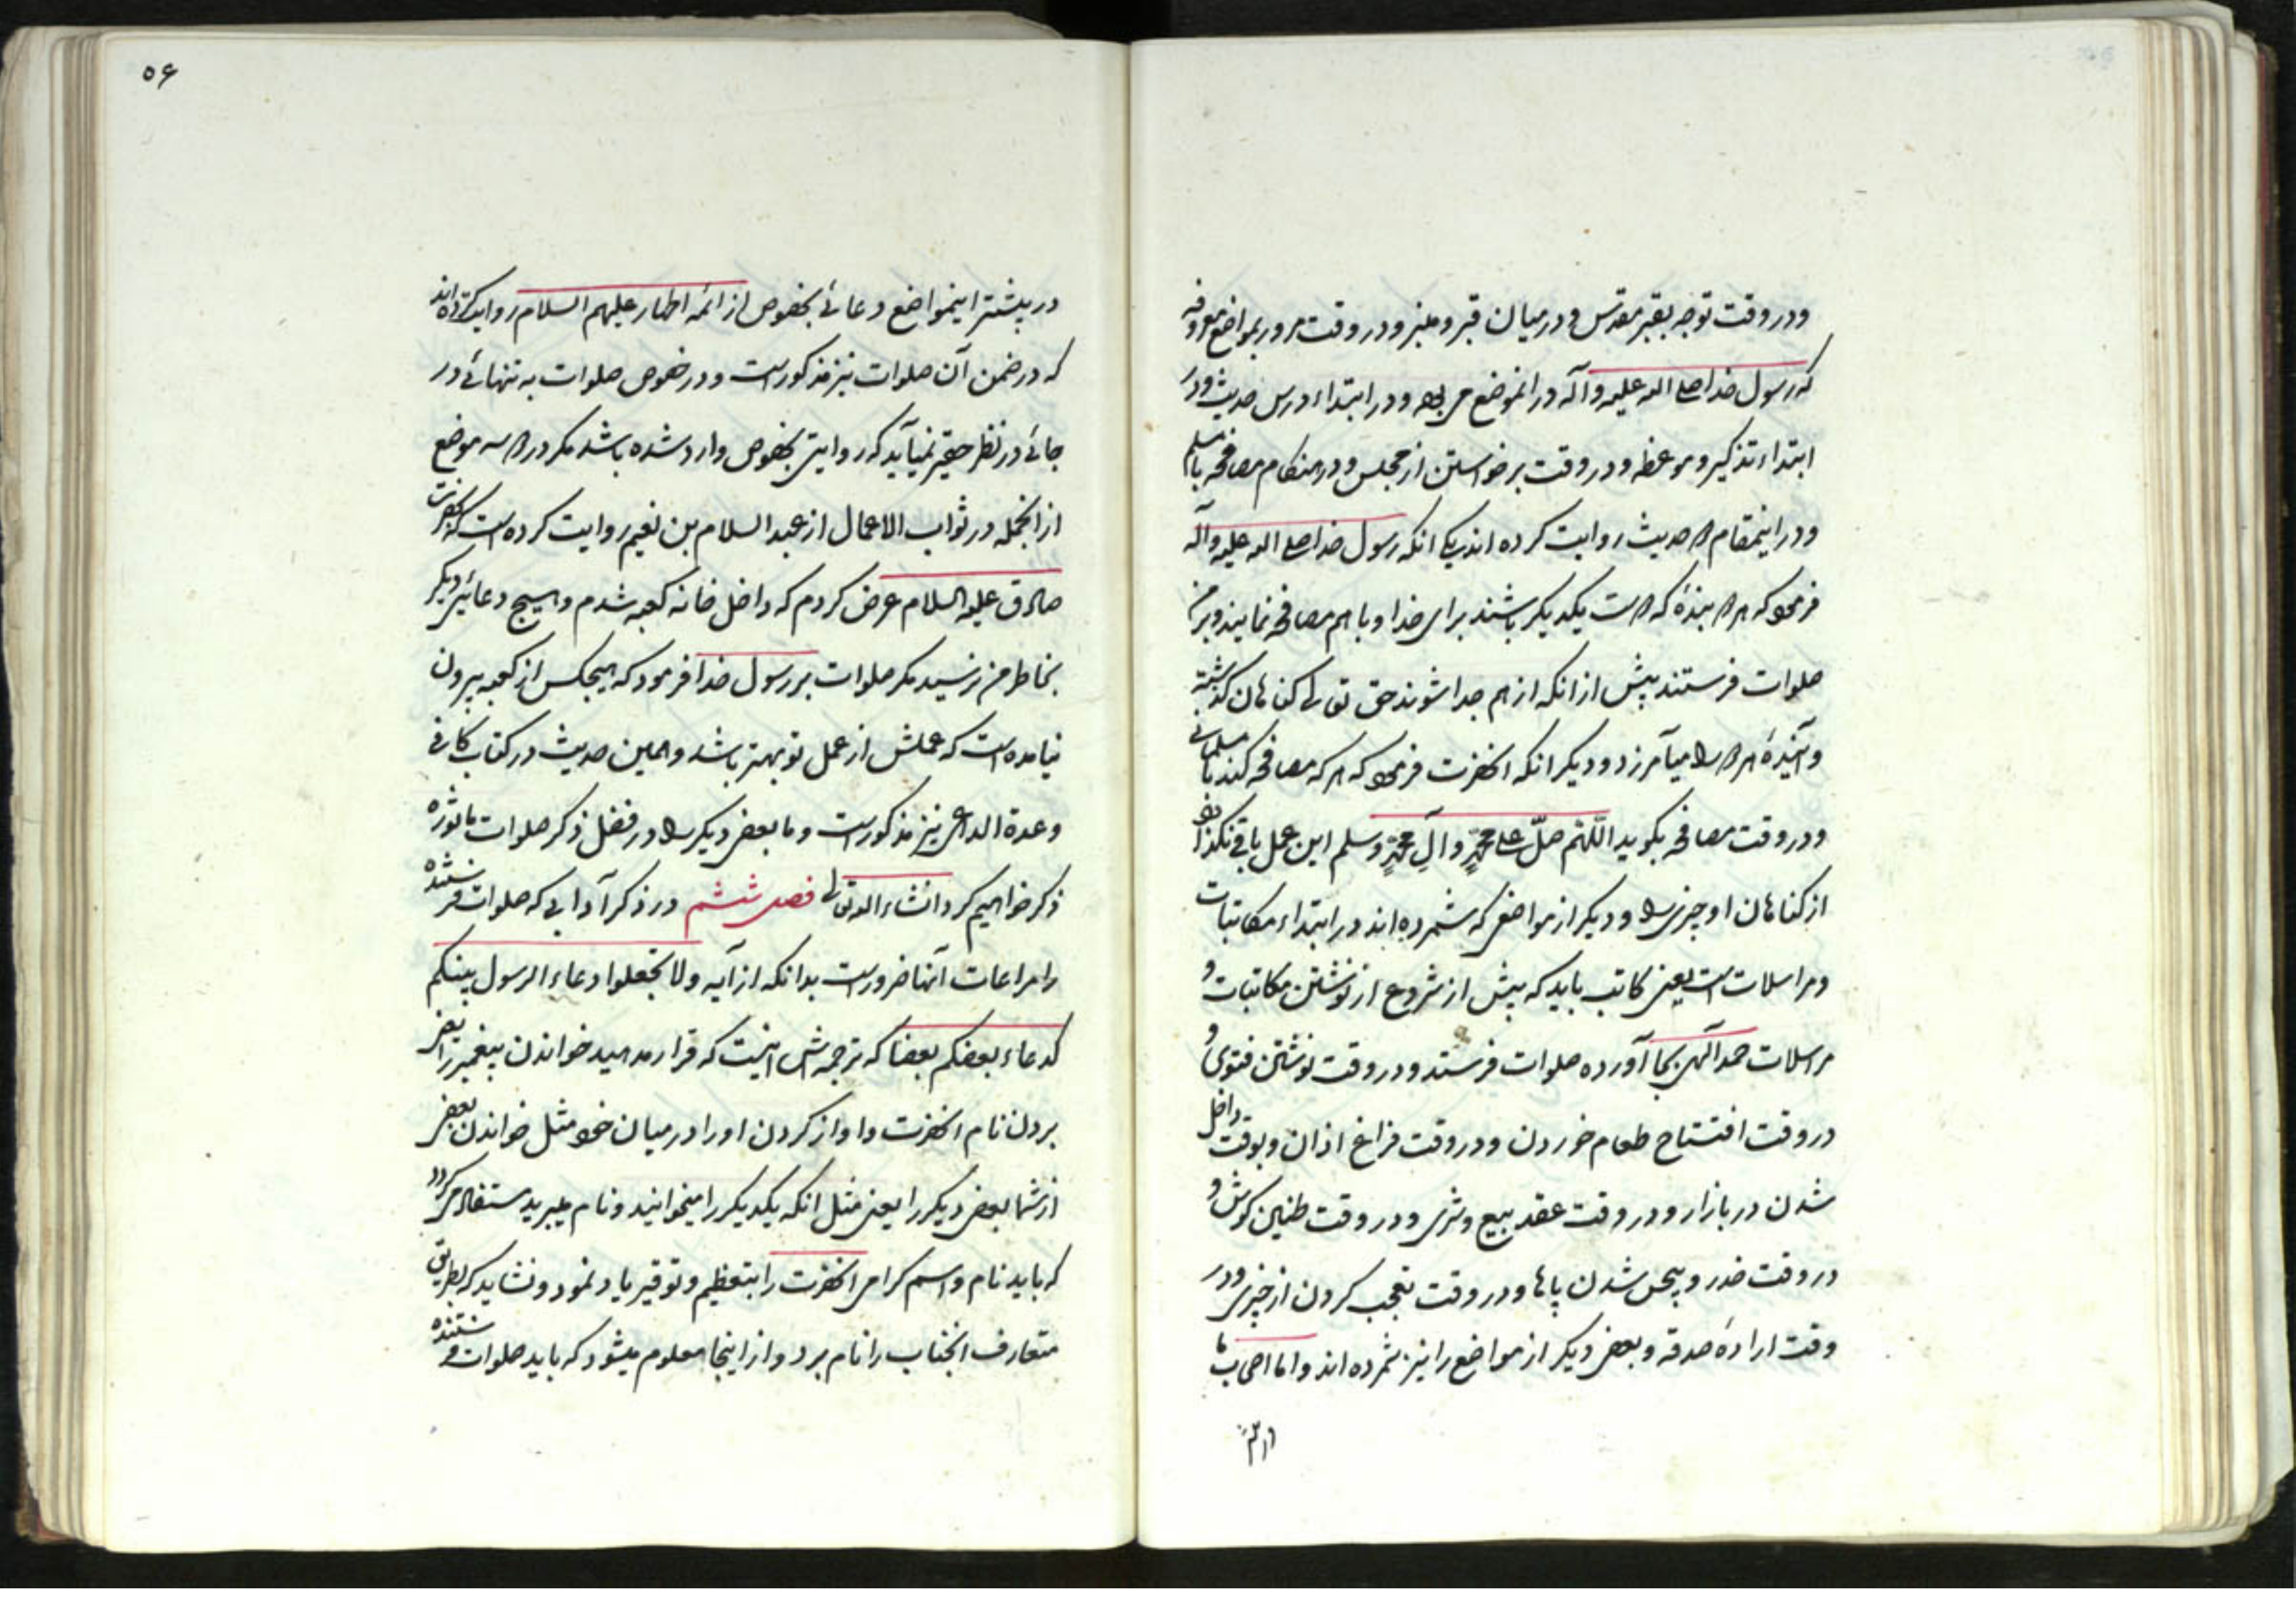 ودر وقت توجه بقبر مقدس و درمیان قبر و منبر و در وقت مرور بمواضع معروفه
که رسول خدا صلی الله علیه وآله در انموضع می بوده و در ابتداء درس حدیث و در
ابتداء تذکیر و موعظه و در وقت برخواستن از مجلس و در هنکام مصافحه با مسلم
و در اینمقام دو حدیث روایت کرده اند یکی انکه رسول خدا صلی الله علیه وآله
فرمود که هر دو بندۀ که دوست یکدیکر باشند برای خدا و با هم مصافحه نمایند و بر من
صلوات فرستند پیش از انکه از هم جدا شوند حق تعالی کناهان کذشته
و آیندۀ هر دو را میآمرزد و دیکر انکه انحضرت فرمود که هر که مصافحه کند با مسلمانی
و در وقت مصافحه بکوید اللّهُم صلّ علی محمّدٍ و آلِ محمّدٍ وسلم این عمل باقی نکذارد
از کناهان او چیزی را و دیکر از مواضعی که شمرده اند در ابتداء مکاتبات
و مراسلات است یعنی کاتب باید که پیش از شروع از نوشتن مکاتبات و
مراسلات حمد آلهی بجا آورده صلوات فرستد و در وقت نوشتن فتوی و
در وقت افتتاح طعام خوردن و در وقت فراغ اذان و بوقت داخل
شدن در بازار و در وقت عقد بیع و شری و در وقت طنین کوش و
در وقت خدر و بیحس شدن پاها و در وقت تعجب کردن از چیزی و در
وقت ارادۀ صدقه و بعضی دیکر از مواضع را نیز شمرده اند و اما اصحاب ما
۵۶
در بیشتر اینمواضع دعائی بخصوص از ائمه اطهار علیهم السلام روایت کرده اند
که در ضمن آن صلوات نیز مذکور است و در خصوص صلوات به تنهائی در
جائی در نظر حقیر نمیآید که روایتی بخصوص وارد شده باشد مکر در دو سه موضع
از انجمله در ثواب الاعمال از عبد السلام بن نعیم روایت کرده است که بحضرت
صادق علیه السلام عرض کردم که داخل خانه کعبه شدم و هیچ دعائی دیکر
بخاطر من نرسید مکر صلوات بر رسول خدا فرمود که هیچکس از کعبه بیرون
نیامده است که عملش از عمل تو بهتر باشد و همین حدیث در کتاب کافی
و عدة الداعی نیز مذکور است و ما بعضی دیکر را در فضل ذکر صلوات ماثوره
ذکر خواهیم کرد انشاء الله تعالی فصل ششم در ذکر آدابی که صلوات فرستنده
را مراعات آنها ضرور است بدانکه از آیه ولا تجعلوا دعاء الرسول بینکم
کدعاء بعضکم بعضا که ترجمه اش اینست که قرار مدهید خواندن پیغمبر را یعنی
بردن نام انحضرت و اواز کردن او را در میان خود مثل خواندن بعضی
از شما بعضی دیکر را یعنی مثل انکه یکدیکر را میخوانید و نام میبرید مستفاد می کردد
که باید نام و اسم کرامی انحضرت را بتعظیم و توقیر یاد نمود و نشاید که بطریق
متعارف انجناب را نام برد و از اینجا معلوم میشود که باید صلوات فرستنده